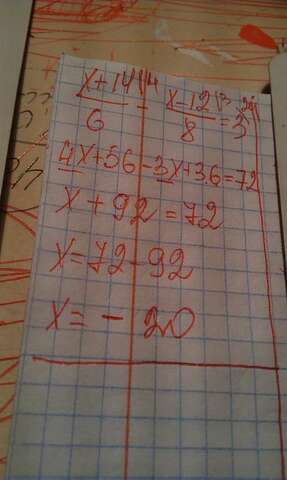 x+14\4 / 6 - x-12\3 / 8 = 3\24
4x+56-3x+36=72
x+92=72
x=72-92
x=-20